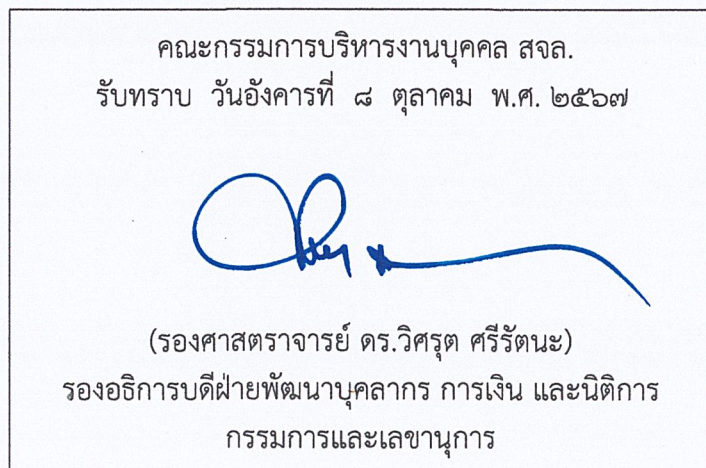 คณะกรรมการบริหารงานบุคคล สจล.
รับทราบ วันอังคารที่ ๘ ตุลาคม พ.ศ. ๒๕๖๗
(รองศาสตราจารย์ ดร.วิศรุต ศรีรัตนะ)
รองอธิการบดีฝ่ายพัฒนาบุคลากร การเงิน และนิติการ
กรรมการและเลขานุการ